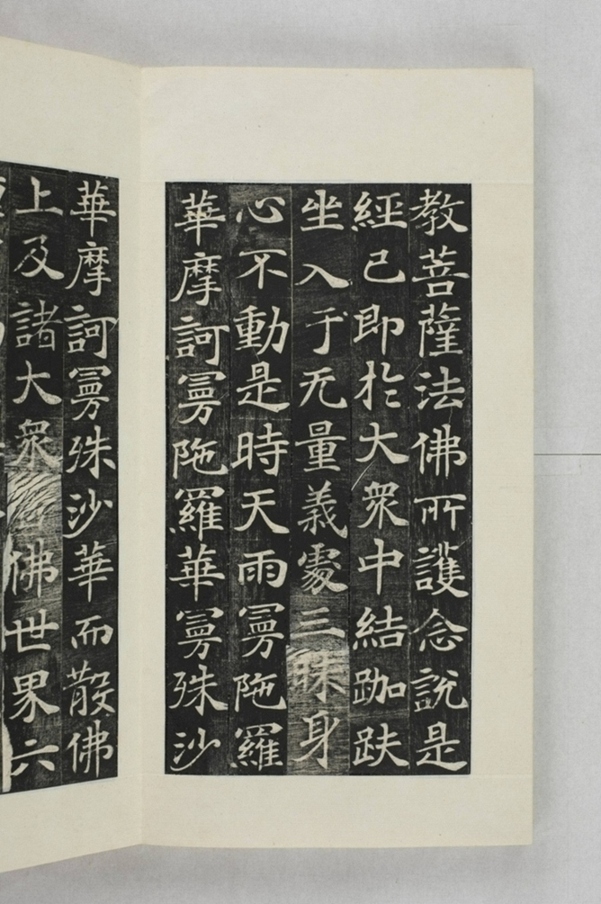 教菩薩法佛所護念說是
經已即於大衆中結跏趺
坐入于无量義處三昧身
心不動是時天雨曼陁羅
華摩訶曼陁羅華曼殊沙
華摩訶曼殊沙華而散佛
上及諸大衆佛世界六